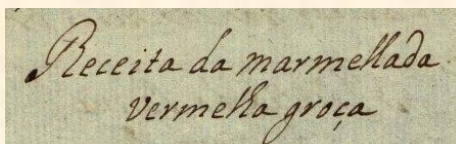 Receita da marmellada
vermelha groça